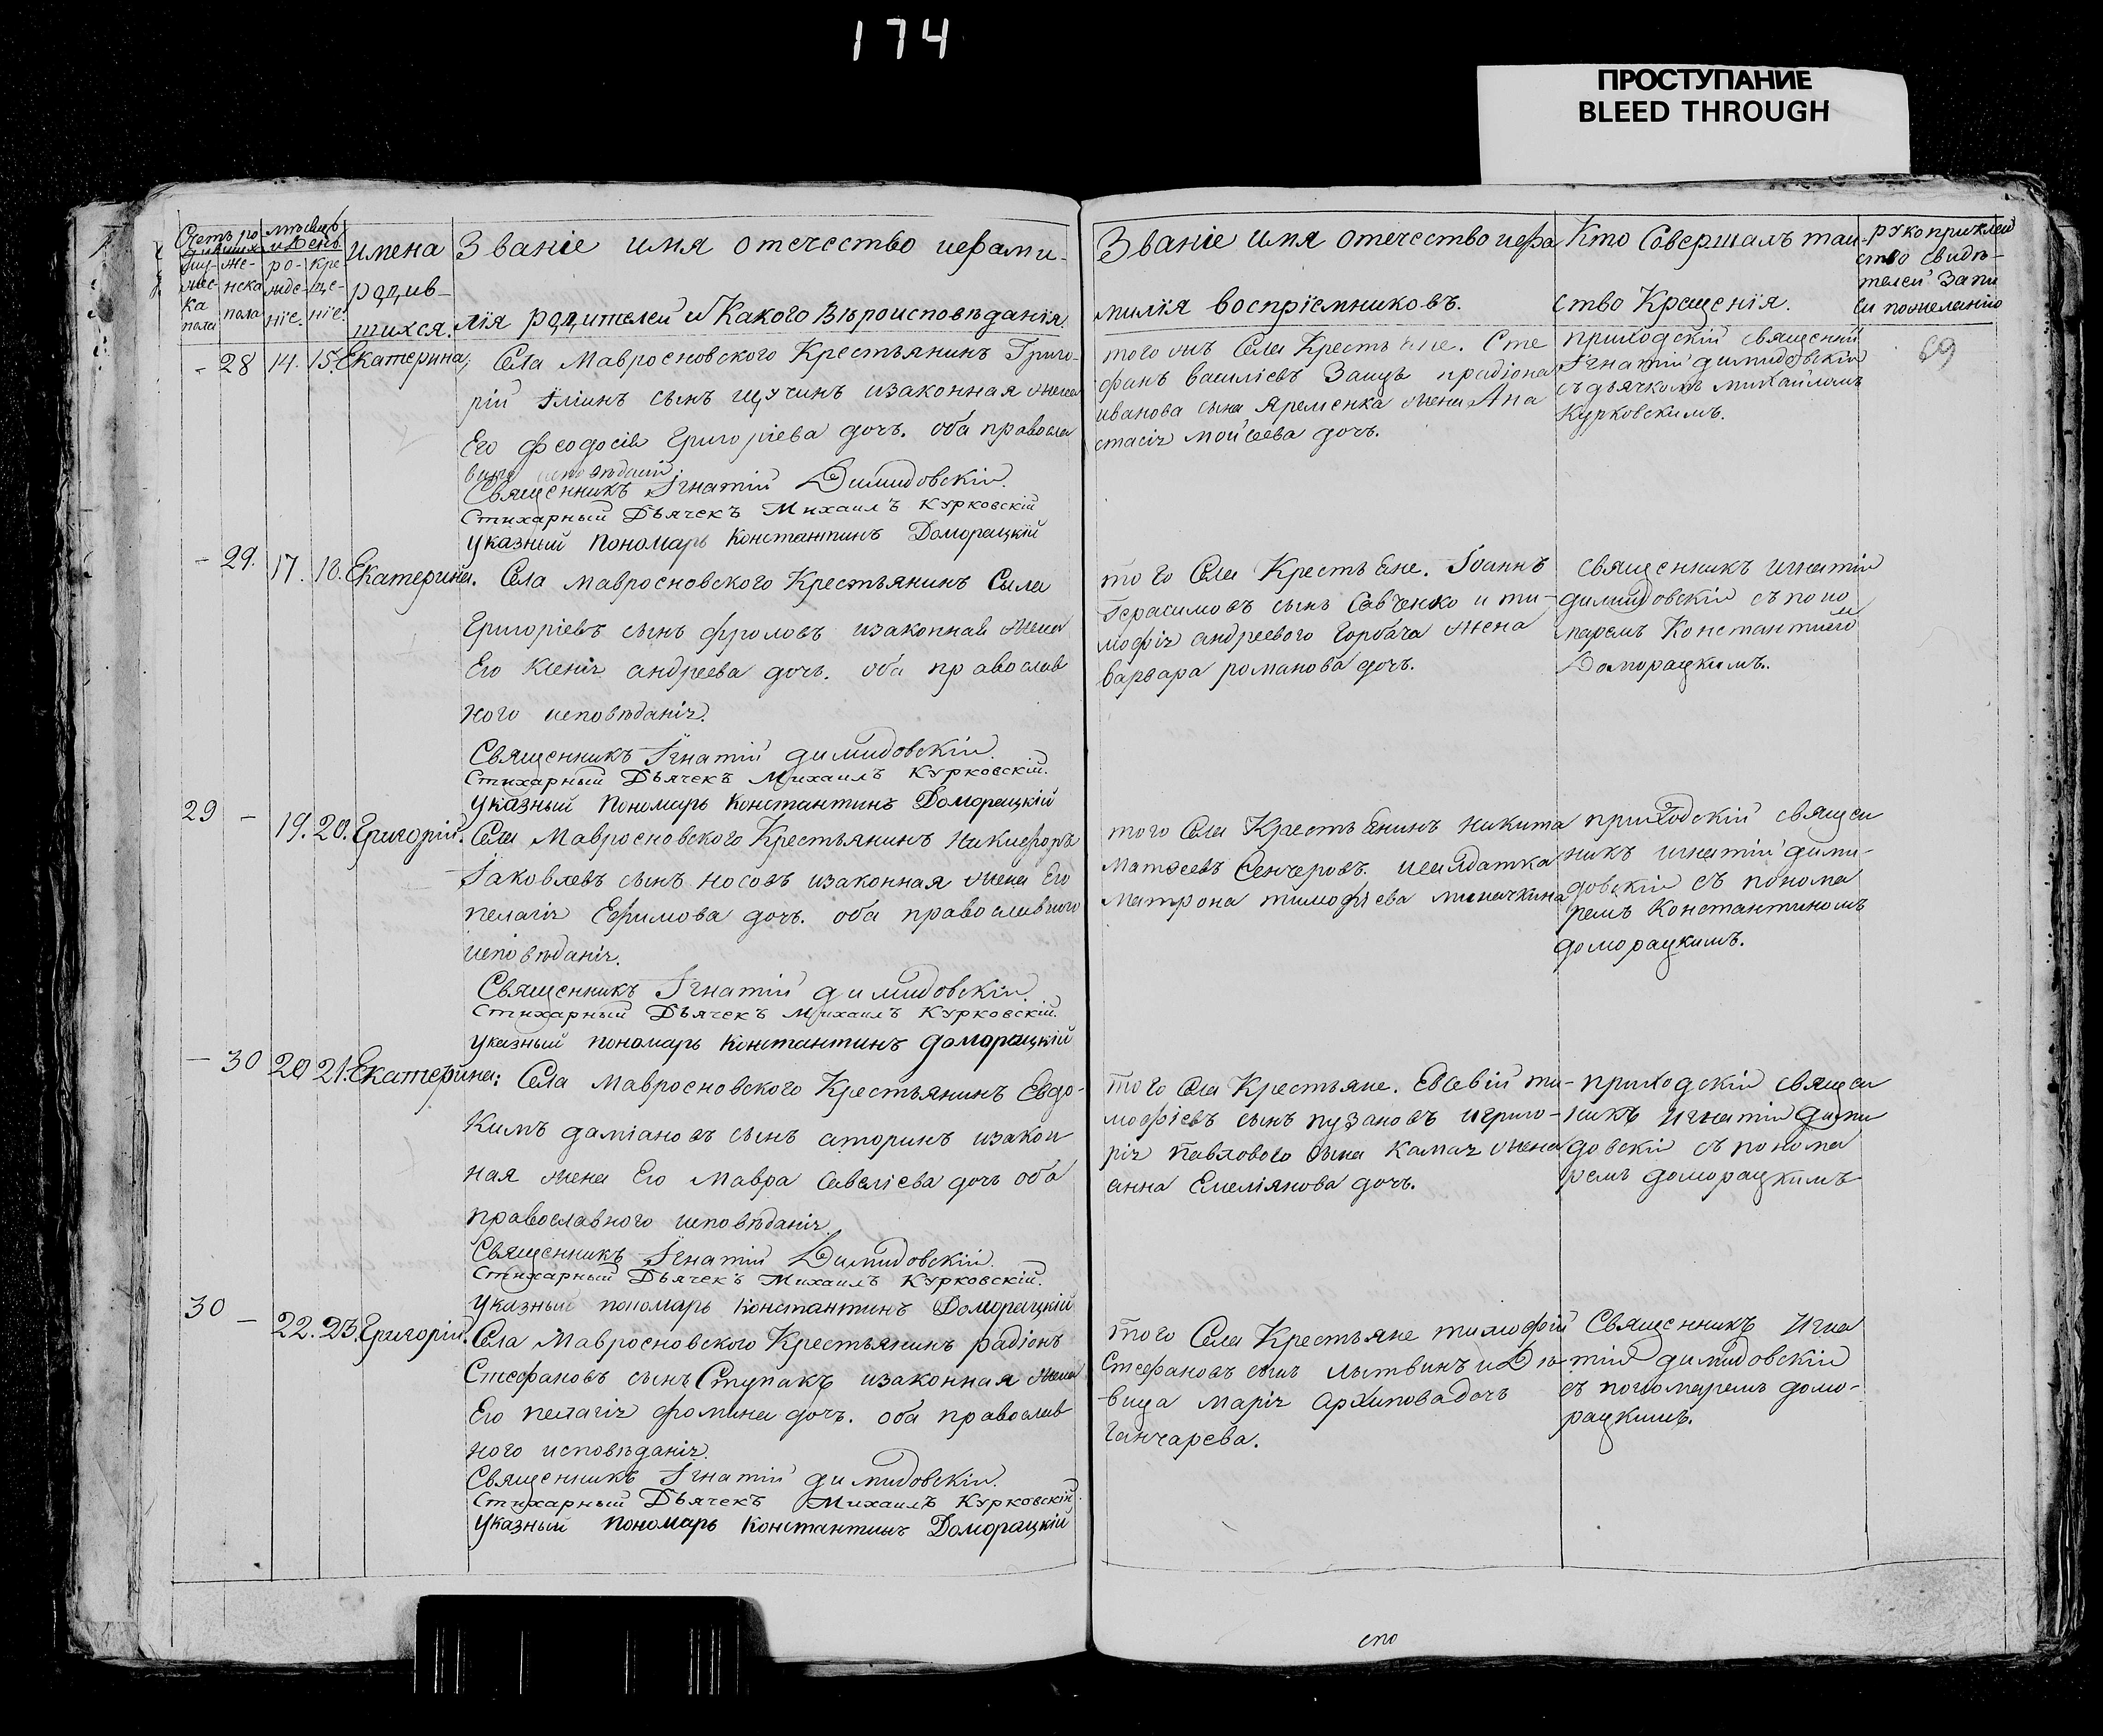 174
ПРОСТУПАНИЕ
BLEED THROUGH
Счетъ ро
дившихся
мѣсяцъ
и День
муж
еска
пола
же-
нска
пола
ро-
жде-
ніе.
Кре-
ще-
ніе.
имена
родив-
шихся.
Званіе имя отечество ифами-
лія родителей и Какого Вѣроисповѣданія
Званіе имя отечество ифа
милія воспріемниковъ.
Кто Совершалъ таи-
ство Крещенія.
рукоприклад
ство свидѣ-
телей Запи
си пожеланію
69
- 28 14. 15. Екатерина;
Села Мавросновского Крестьянинъ Григо-
рій Іліинъ сынъ щучинъ изаконная жена
Его феодосія Григоріева дочъ. оба православ
Священникъ Ігнатій Димидовскій.
Стихарный Дьячекъ Михаилъ Курковскій
Указный Пономарь Константинъ Доморацкій
того жъ Села Крестьяне. Сте
фанъ василіевъ Заицъ ирадіона
иванова сына Яременка жена Ана
стасія моисеева дочъ.
приходскій священни
Ігнатій димидовскій
съ дьячкомъ михаиломъ
Курковскимъ.
- 29. 17. 18. Екатерина.
Села Мавросновского Крестьянинъ Сыла
Григоріевъ сынъ фроловъ изаконная жена
Его Ксенія андреева дочъ. оба православ
ного исповѣданія.
Священникъ Ігнатій димидовскій.
Стихарный Дьячекъ Михаилъ Курковскій.
Указный Пономарь Константинъ Доморацкій
того Села Крестьяне. Іоаннъ
Герасимовъ сынъ Савченко и ти-
мофія андреевого Горбача жена
варвара романова дочъ.
священникъ игнатій
димидовскій съ поно
маремъ Константиномъ
Доморацкимъ.
29 - 19. 20. Григорій.
Села Мавросновского Крестьянинъ Никифоръ
Іаковлевъ сынъ Носовъ изаконная жена Его
пелагія Ефимова дочъ. оба православного
исповѣданія.
Священникъ Ігнатій димидовскій.
Стихарный Дьячекъ Михаилъ Курковскій.
Указный пономарь Константинъ доморацкій
того Села Крестьянинъ никита
Матѳеевъ Сенчеровъ. исалдатка
Матрона тимофѣева
приходскій священ
никъ игнатій дими-
довскій съ понома
ремъ Константиномъ
доморацкимъ.
- 30 20 21. Екатерина;
Села Мавросновского Крестьянинъ Евдо-
Кимъ даміановъ сынъ аторинъ изакон
ная жена Его Мавра Савеліева дочъ оба
православного исповѣданія.
Священникъ Ігнатій Димидовскій.
Стихарный Дьячекъ Михаилъ Курковскій.
Указный пономарь Константинъ Доморацкій
того Села Крестьяне. Евсевій ти-
мофіевъ сынъ пузановъ игриго-
рія Павлового сына Камач жена
анна Емеліянова дочъ.
приходскій священ
никъ Игнатій дими
довскій съ понома
ремъ доморацкимъ
30 - 22. 23. Григорій.
Села Мавросновского Крестьянинъ радіонъ
Стефановъ сынъ Ступакъ изаконная жена
Его пелагія фомина дочъ. оба православ
ного исповѣданія.
Священникъ Ігнатій димидовскій.
Стихарный Дьячекъ Михаилъ Курковскій.
Указный пономарь Константинъ Доморацкій
того Села Крестьяне тимофій
Стефановъ сынъ лытвинъ иДѣ
вица марія архиповадочъ
Ганчарева.
Священникъ Игна
тій димидовскій
съ пономаремъ домо-
рацкимъ.
спо